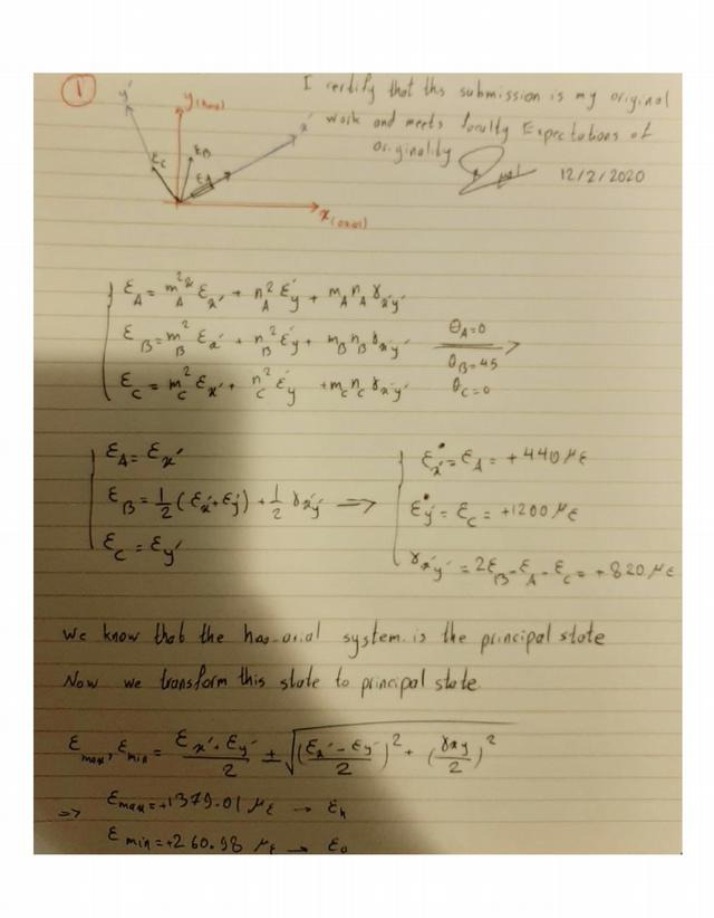 1
I certify that this submission is my original
work and meets faculty Expectations of
originality
12/2/2020
y'
y (hoop)
x'
εC
εB
εA
x (axial)
εA = m²A εx' + n²A εy' + mA nA γx'y'
εB = m²B εx' + n²B εy' + mB nB γx'y'
εC = m²C εx' + n²C εy' + mC nC γx'y'
θA=0
θB=45
θC=0
εA = εx'
εB = 1/2 (εx' + εy') + 1/2 γx'y' ⟹
εC = εy'
εx' = εA = +440 με
εy' = εC = +1200 με
γx'y' = 2εB - εA - εC = +820 με
We know that the system is the principal state
Now we transform this state to principal state
εmax, εmin = (εx' + εy')/2 ± √((εx' - εy')/2)² + (γxy/2)²
⇒ εmax = +1379.01 με → εh
εmin = +260.98 με → εa